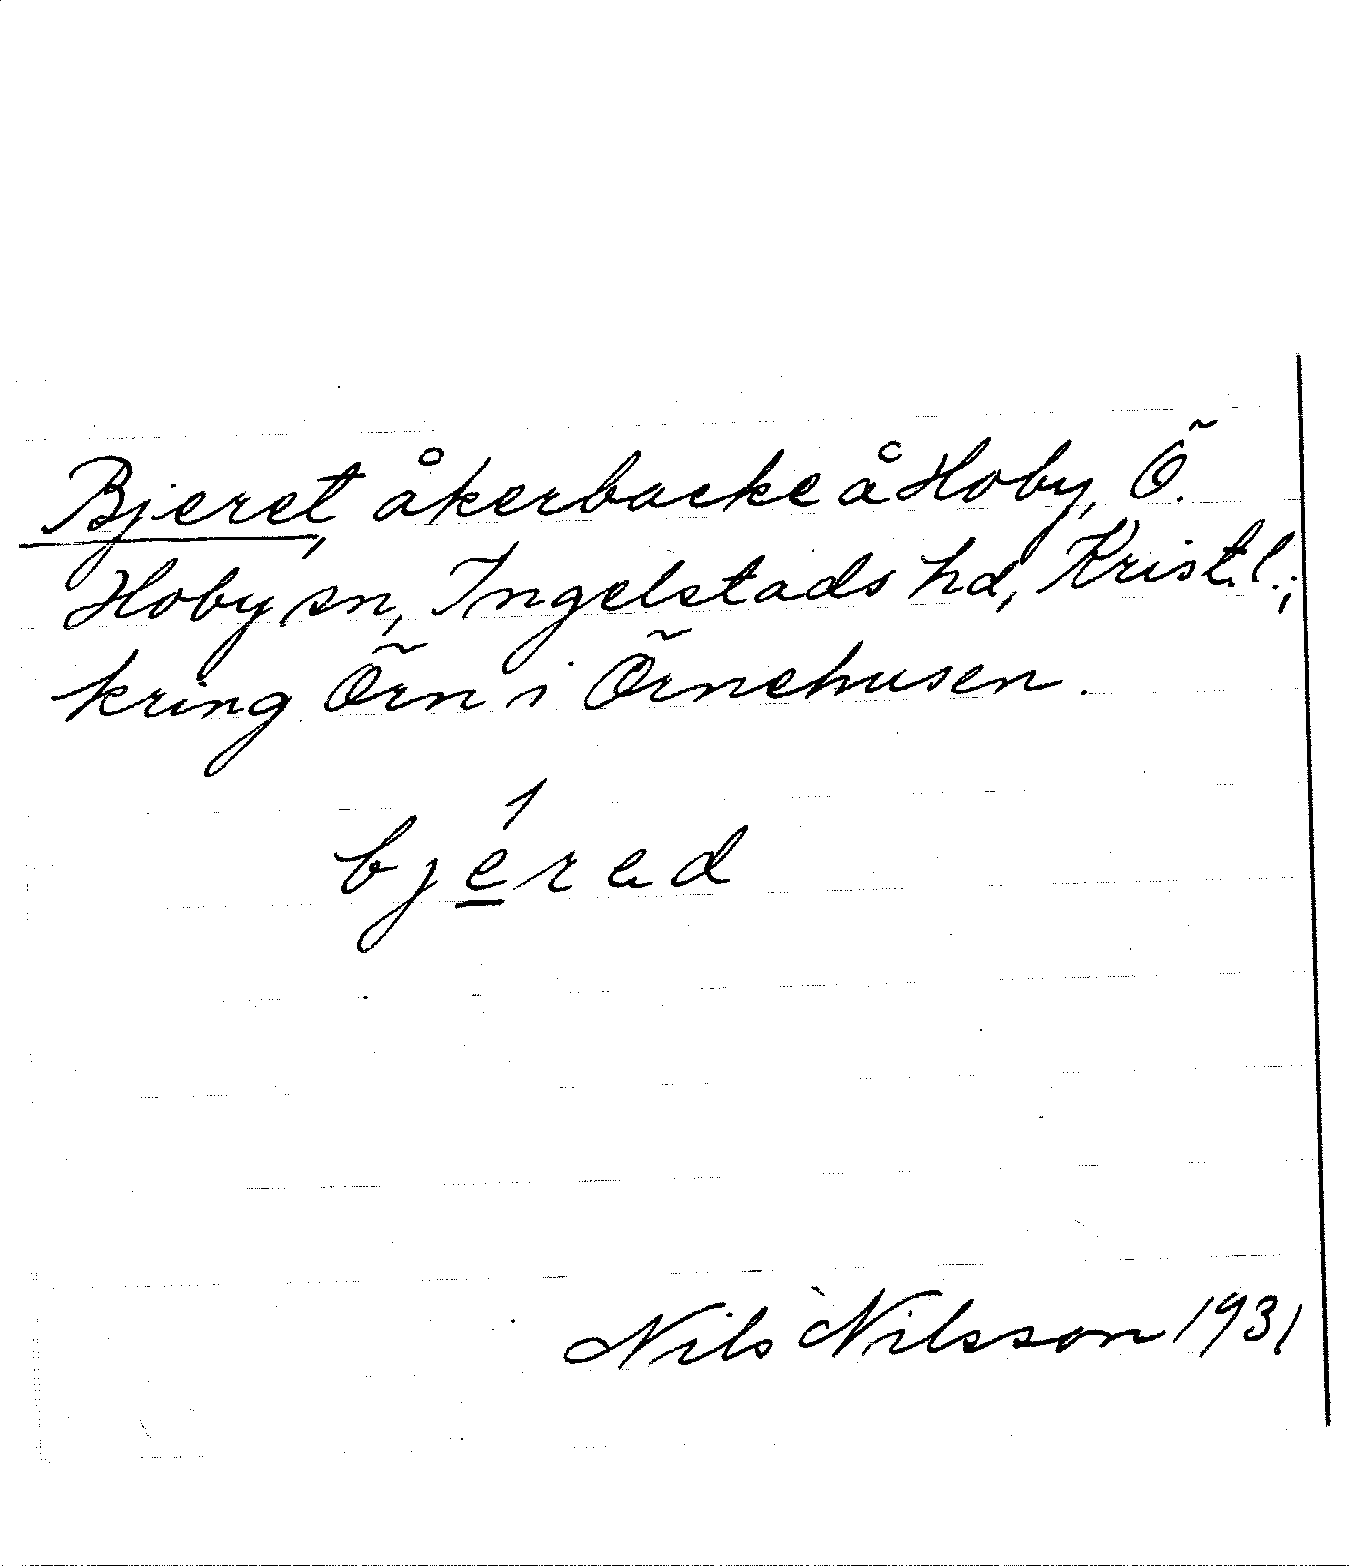 Bjeret, åkerbacke å Hoby, Ö.
Hoby sn, Ingelstads hd, Krist. l.;
kring Örn i Örnehusen.
bjérad
Nils Nilsson 1931